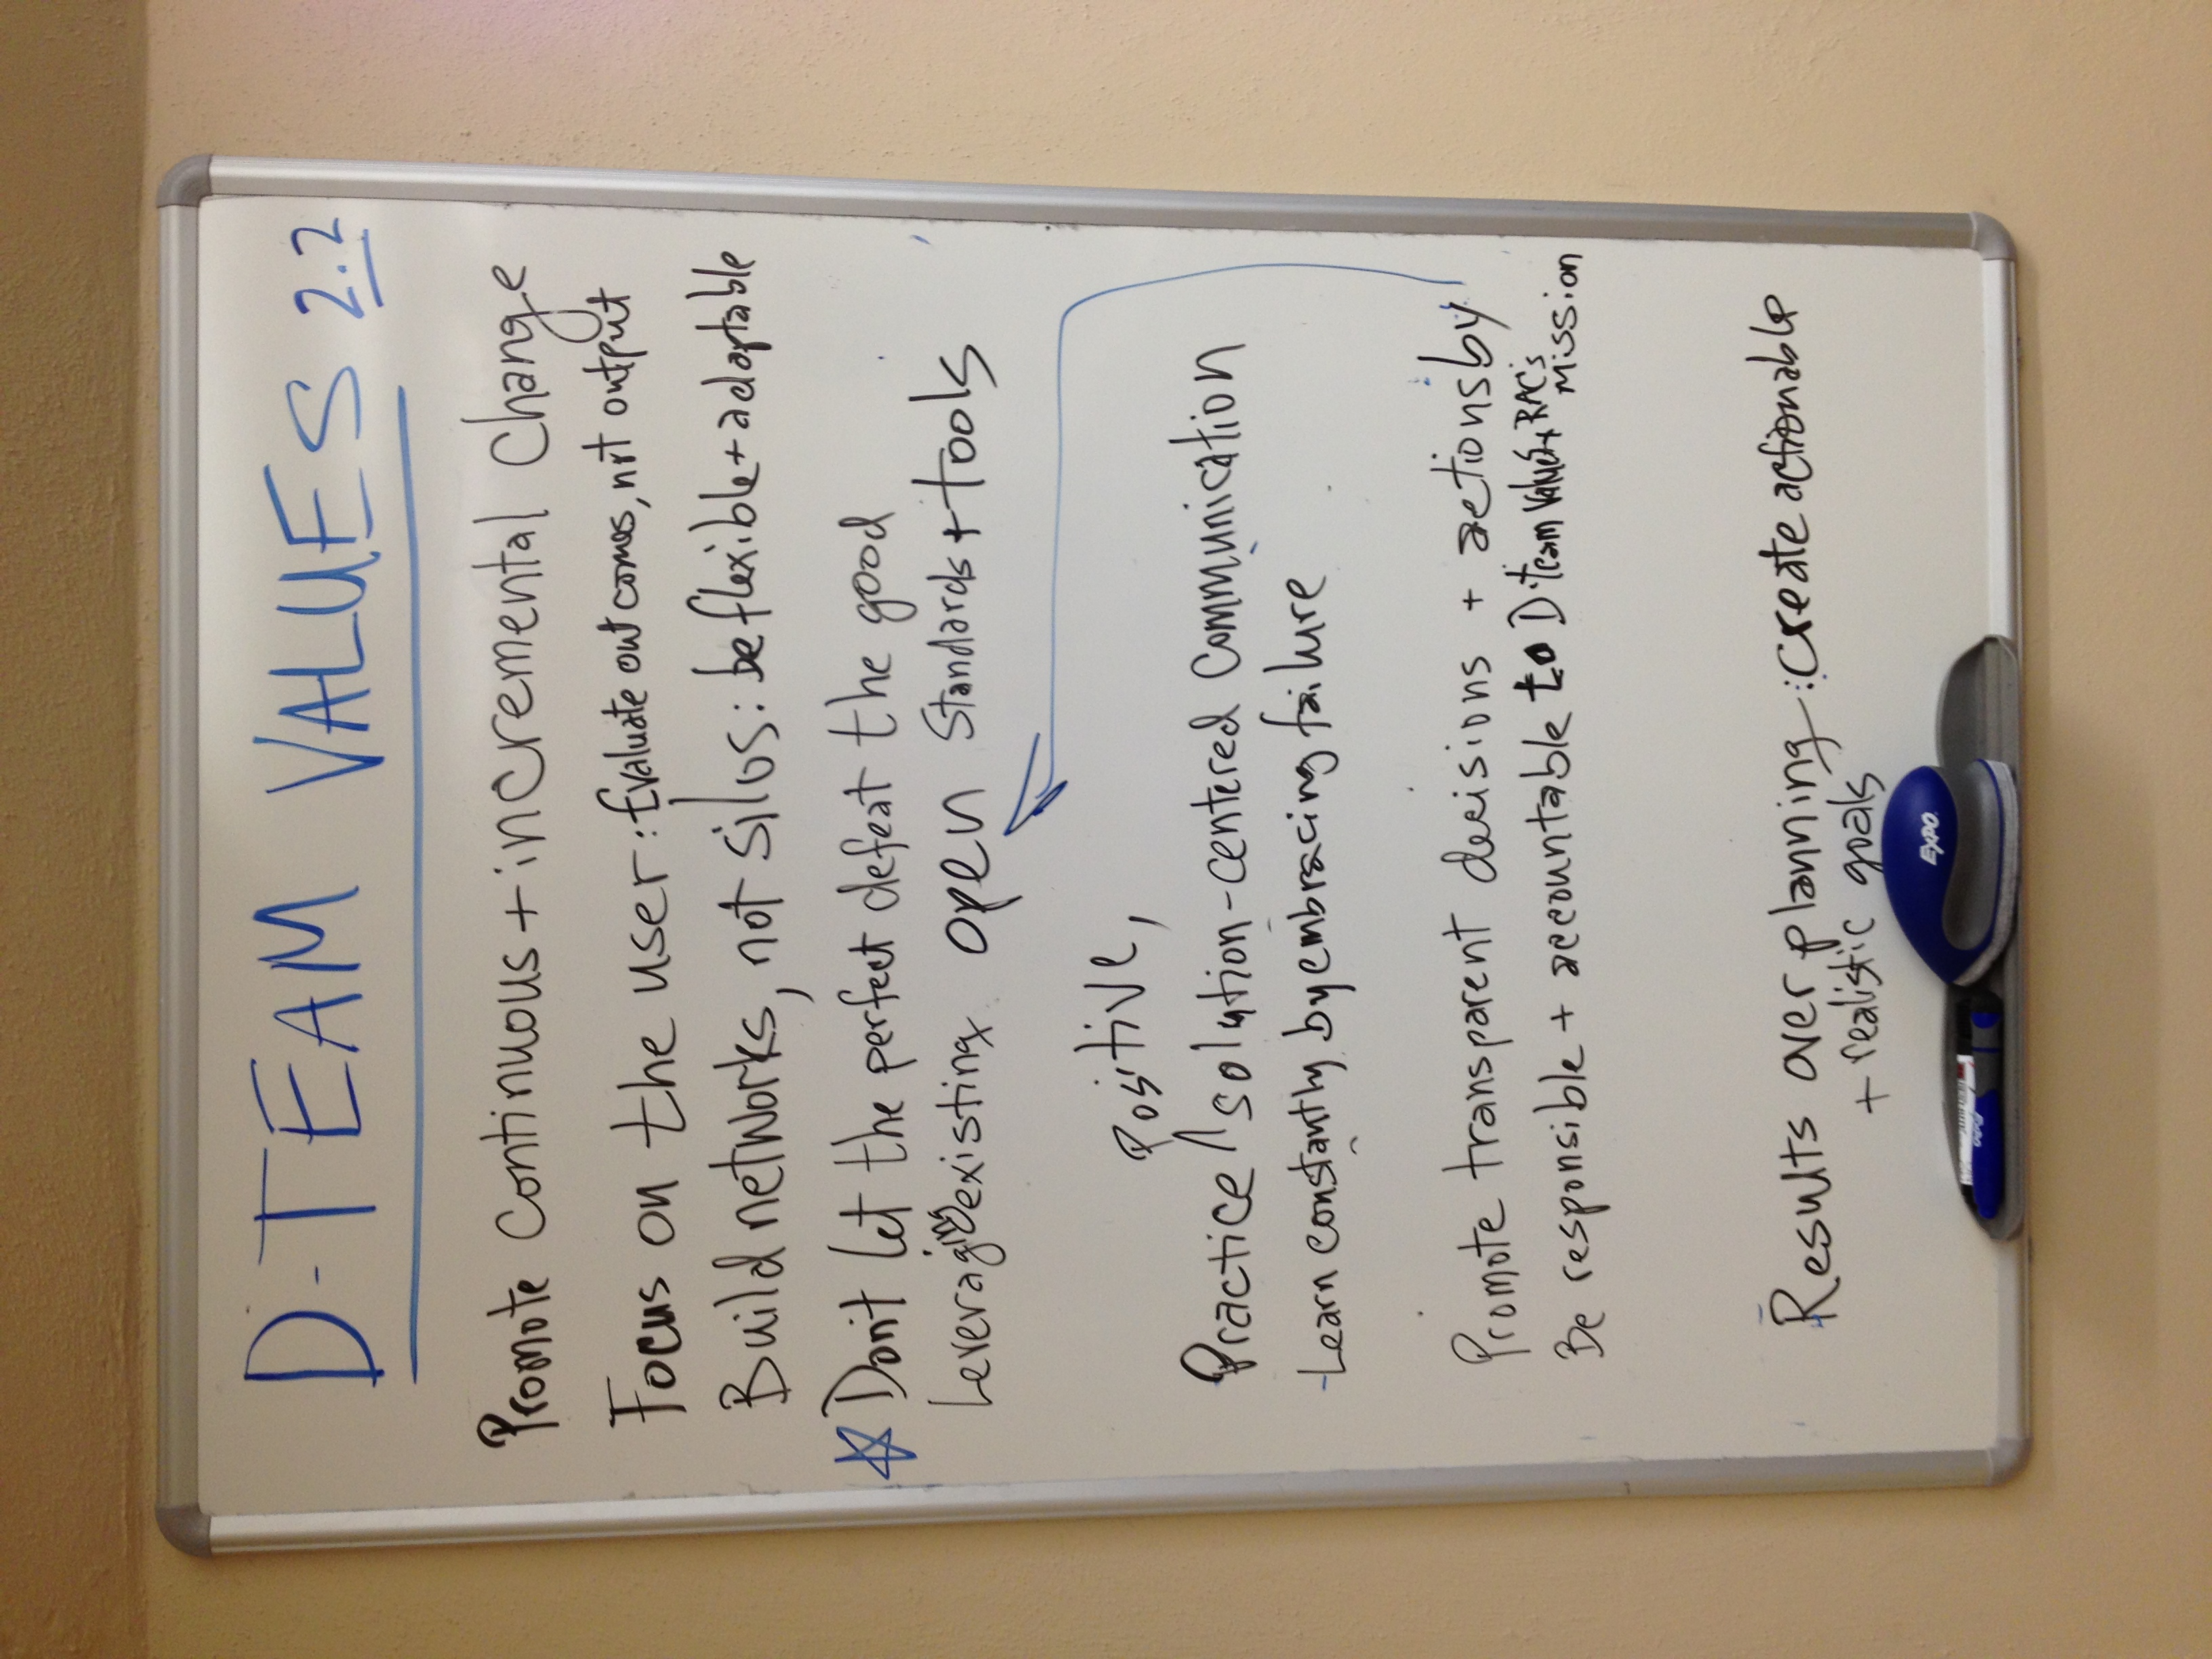 D-TEAM VALUES 2.2
Promote continuous + incremental change
Focus on the user: Evaluate outcomes, not output
Build networks, not silos: be flexible + adaptable
Don't let the perfect defeat the good
Leveraging existing open standards + tools
Positive,
Practice solution-centered communication
-Learn constantly by embracing failure
Promote transparent decisions + actions by
Be responsible + accountable to D-team values + RAC's
mission
Results over planning: create actionable
+ realistic goals
EXPO